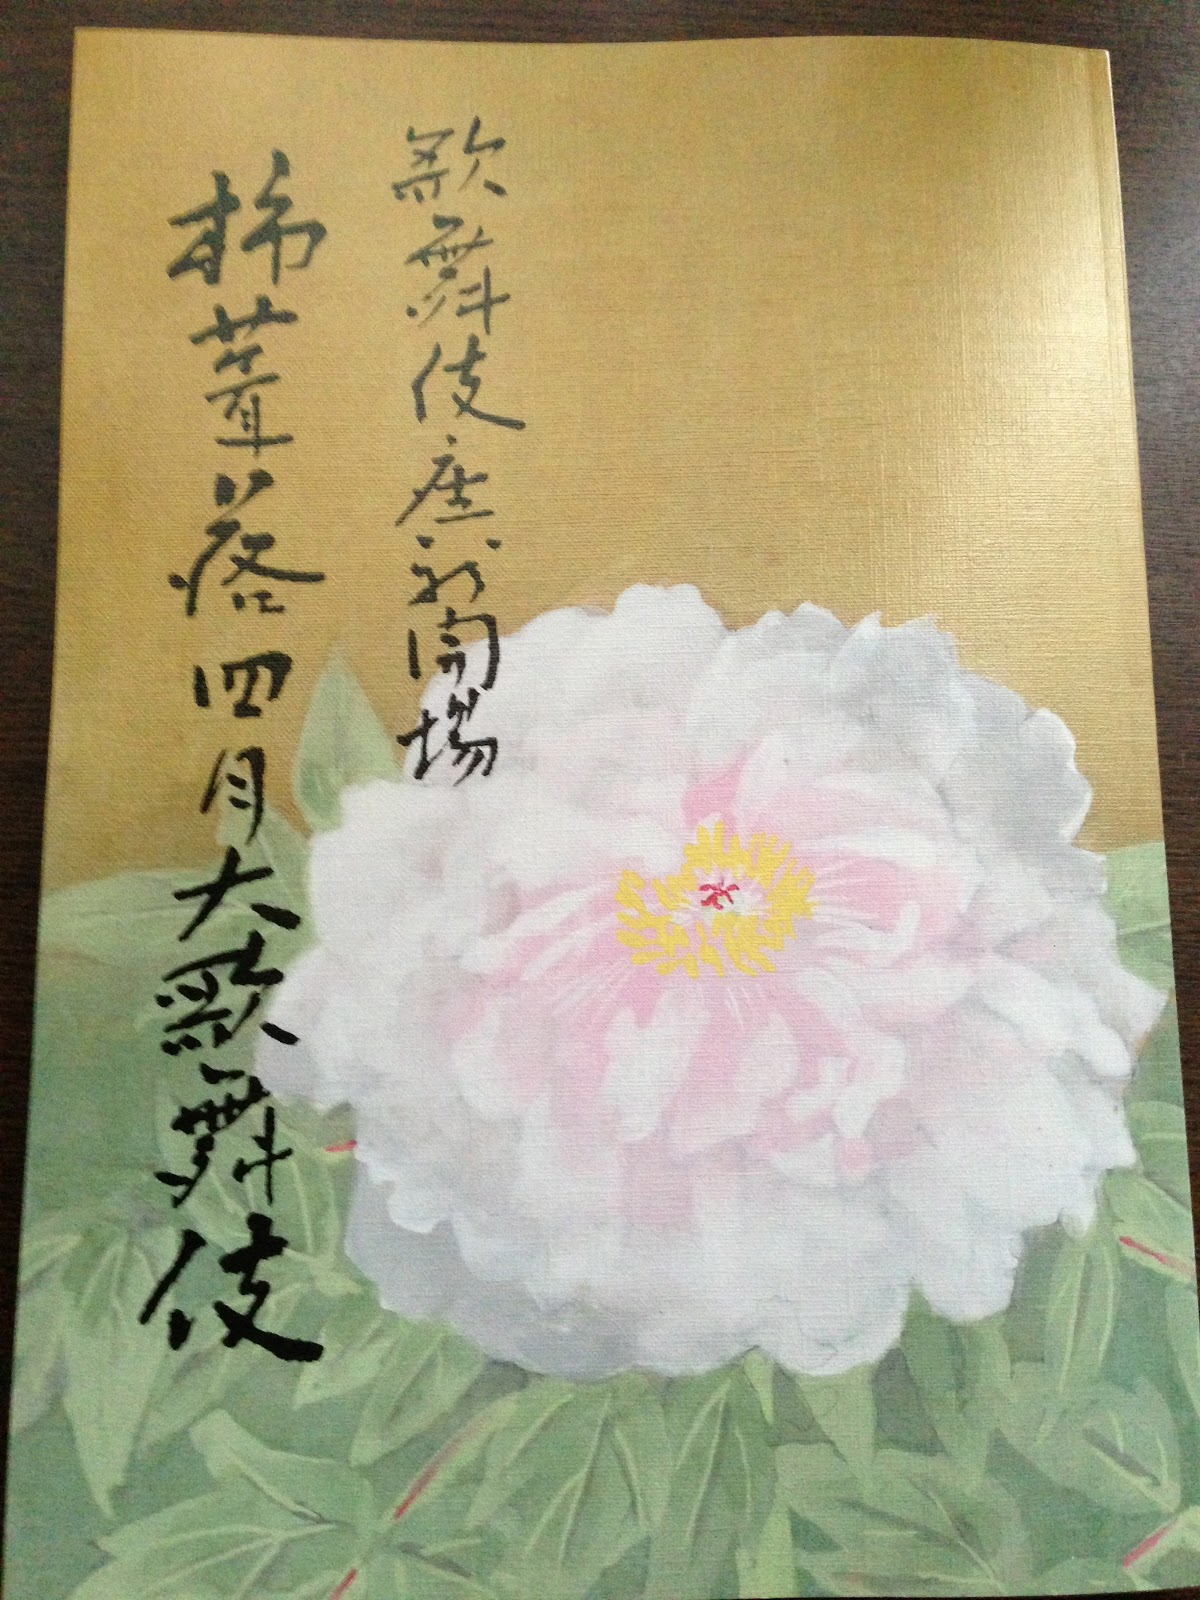 歌舞伎座新開場
杮葺落四月大歌舞伎